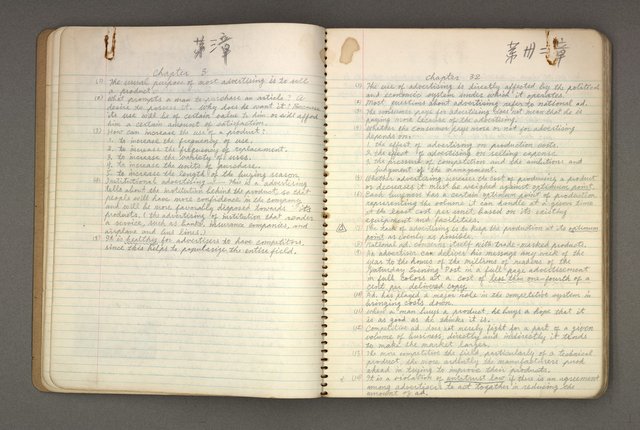 第三章
Chapter 3
(1) The usual purpose of most advertising is to sell
a product.
(2) What prompts a man to purchase an article? A
desire to possess it. Why does he want it? Because
its use will be of certain value to him or will afford
him a certain amount of satisfaction.
(3) How can increase the use of a product?
1. to increase the frequency of use.
2. to increase the frequency of replacement.
3. to increase the variety of uses.
4. to increase the units of purchase.
5. to increase the length of the buying season.
(4) Institutional advertising — This is a advertising
tells about the institution behind the product so that
people will have more confidence in the company
and will be more favorably disposed towards its
products. (the advertising of institution that render
a service, such as banks, insurance companies, and
airplane and bus lines.)
(5) It is healthy for advertisers to have competitors,
since this helps to popularize the entire field.
第卅二章
Chapter 32
(1) The use of advertising is directly affected by the political
and economic system under which it operates.
(2) Most questions about advertising refer to national ad.
(3) The consumer pays for advertising does not mean that he is
paying more because of the advertising.
(4) Whether the consumer pays more or not for advertising
depends on:
1. the effect of advertising on production costs.
2. the effect of advertising on selling expense.
3. the pressure of competition and the ambitions and
judgement of the management.
(5) Whether advertising increases the cost of producing a product
or decreases it must be weighed against optimum point.
(6) Each business has a certain optimum point of production
representing the volume it can handle at a given time
at the least cost per unit, based on its existing
equipment and facilities.
(7) The task of advertising is to keep the production at its optimum
point as nearly as possible.
(8) National ad. concerns itself with trade-marked products.
(9) An advertiser can deliver his message any week of the
year to the homes of the millions of readers of the
Saturday Evening Post in a full page advertisement
in full colors at a cost of less than one-fourth of a
cent per delivered copy.
(10) Ad. has played a major role in the competitive system in
bringing costs down.
(11) When a man buys a product he buys a hope that it
is as good as he thinks it is.
(12) Competitive ad. does not merely fight for a part of a given
volume of business; directly and indirectly it tends
to make the market larger.
(13) The more competitive the field, particularly of a technical
product, the more ardently the manufacturers push
ahead in trying to improve their products.
(14) It is a violation of antitrust law if there is an agreement
among advertisers to act together in reducing the
amount of ad.